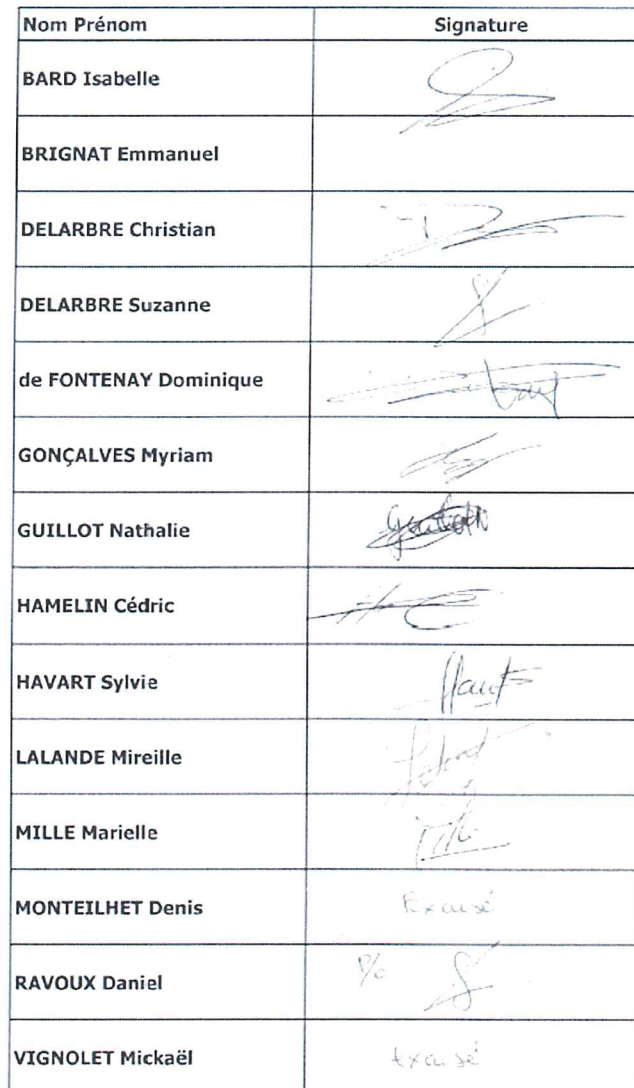 Nom Prénom Signature
BARD Isabelle
BRIGNAT Emmanuel
DELARBRE Christian
DELARBRE Suzanne
de FONTENAY Dominique
GONÇALVES Myriam
GUILLOT Nathalie
HAMELIN Cédric
HAVART Sylvie
LALANDE Mireille
MILLE Marielle
MONTEILHET Denis Excusé
RAVOUX Daniel P/o
VIGNOLET Mickaël Excusé